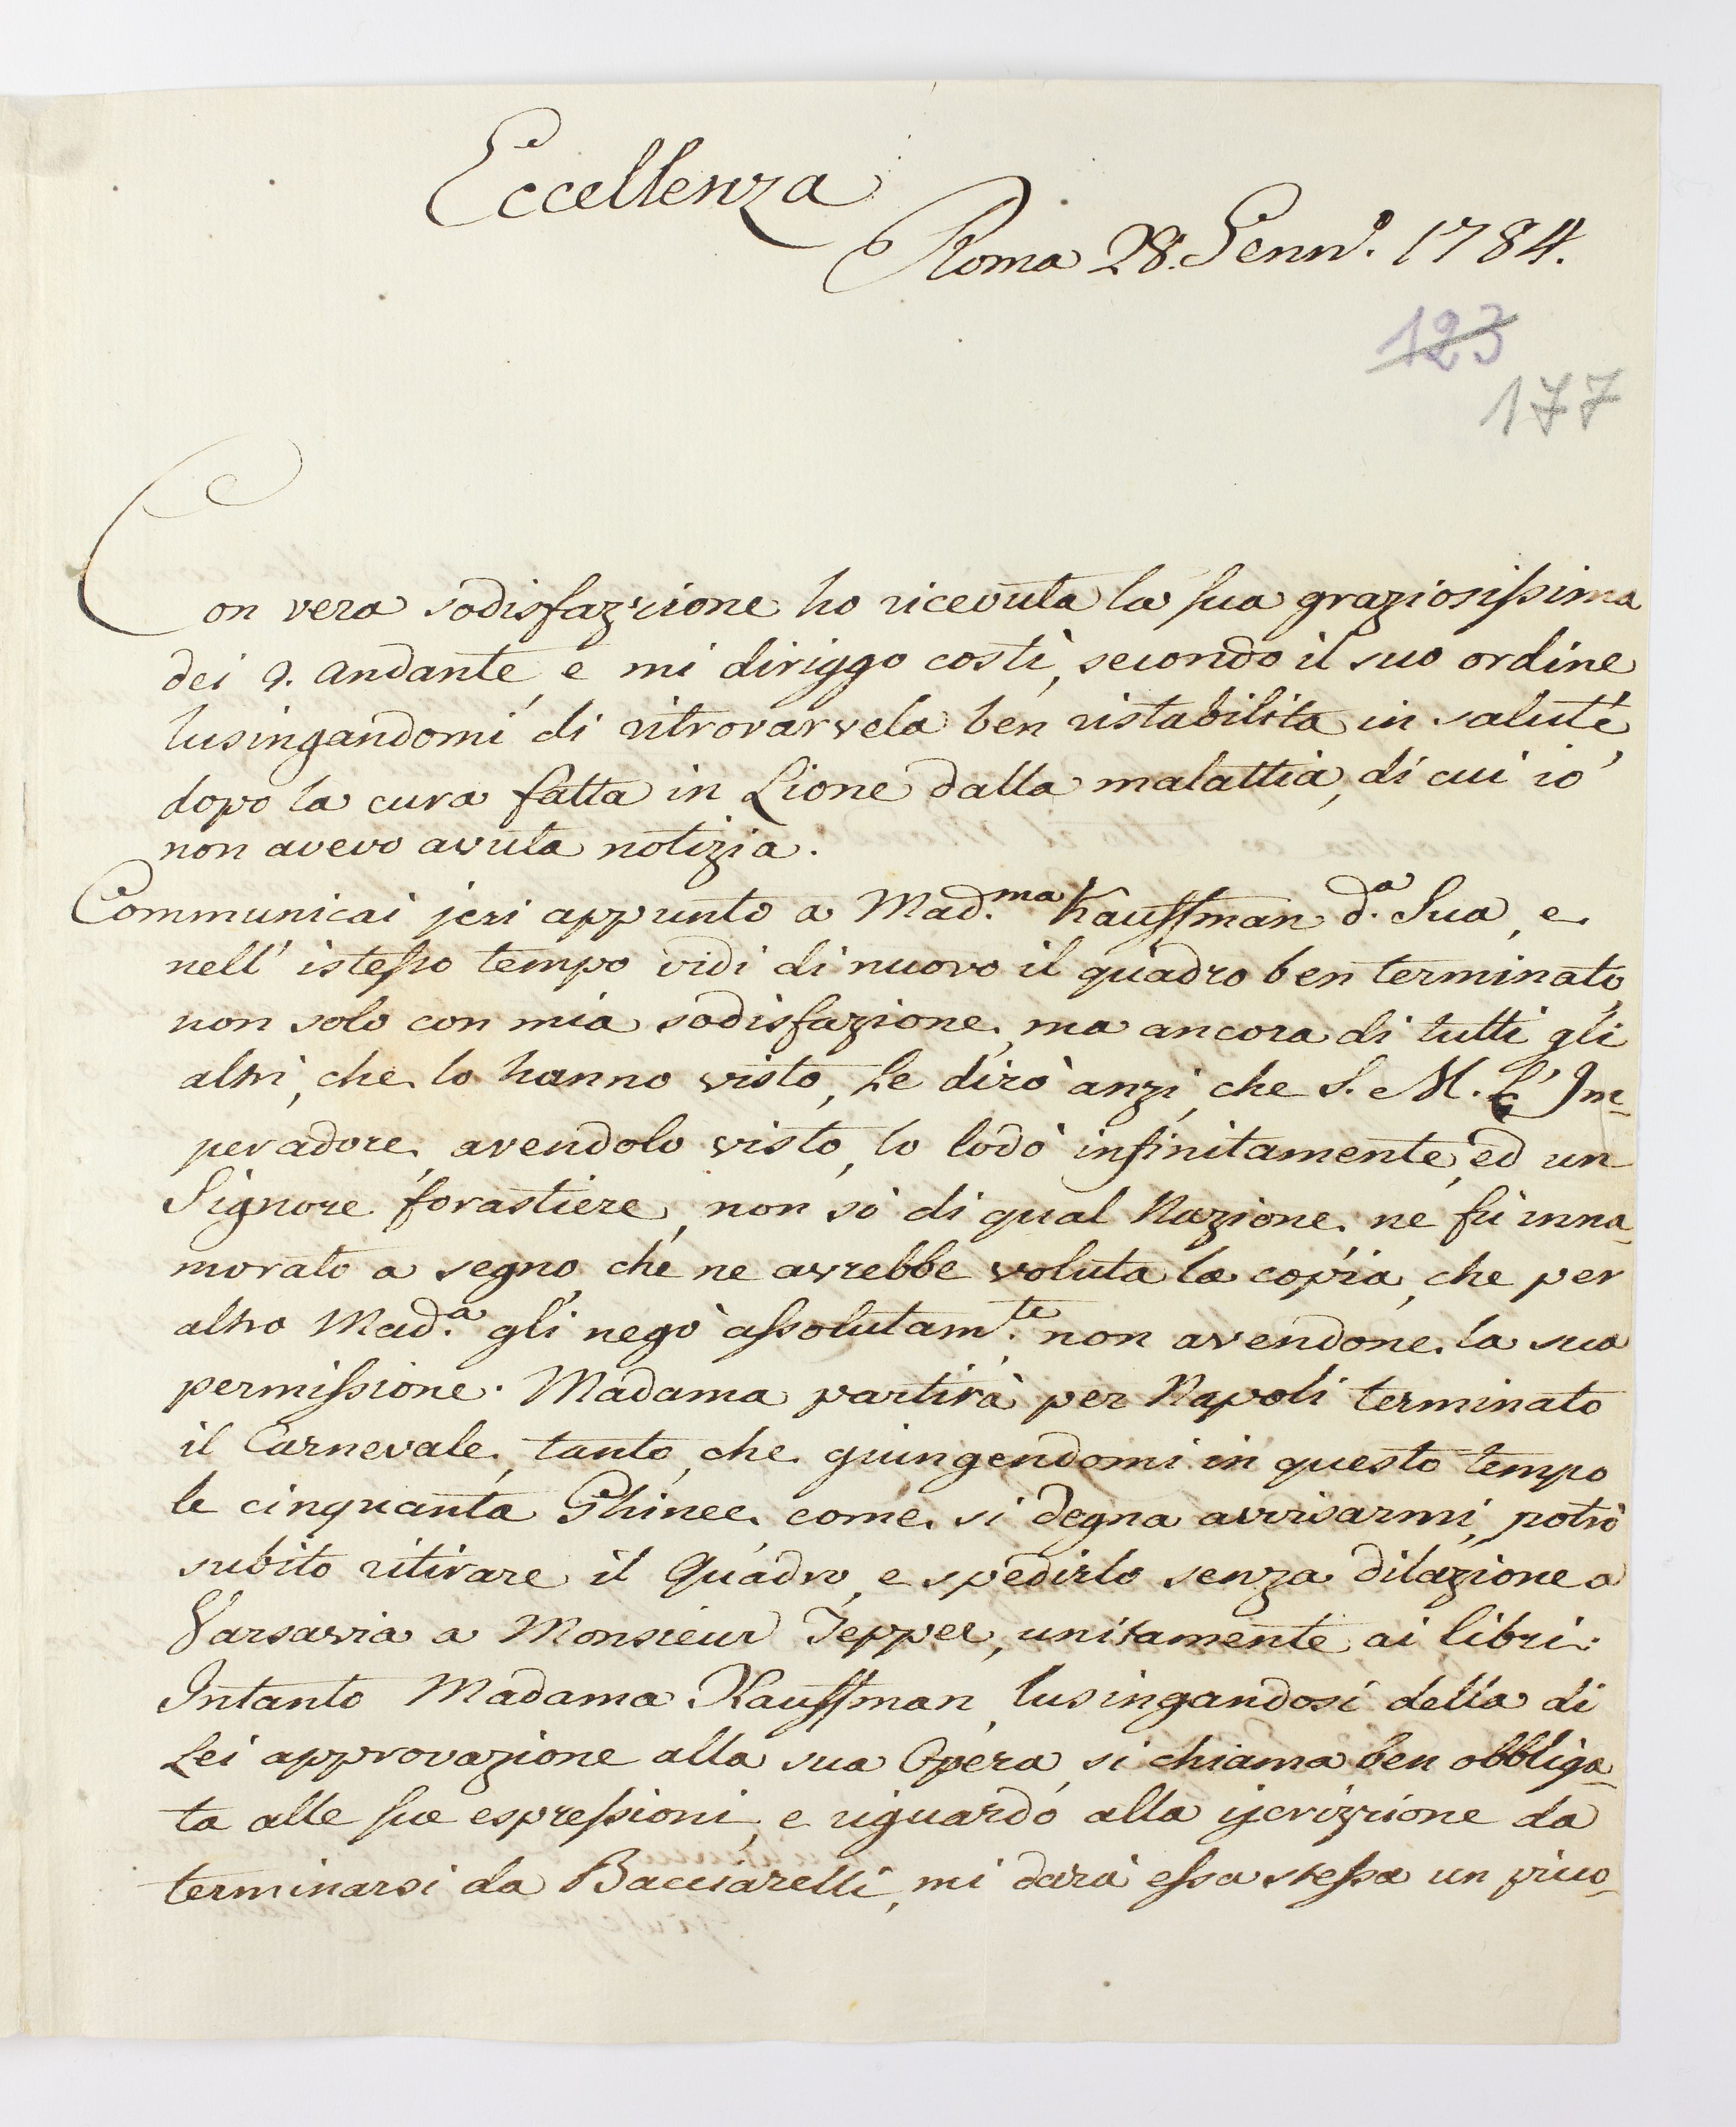 Eccellenza
Roma 28. Genn.º 1784.
123
177
Con vera sodisfazzione ho ricevuta la sua graziosissima
dei 9. andante, e mi diriggo costì, secondo il suo ordine
lusingandomi di ritrovarvela ben ristabilita in salute,
dopo la cura fatta in Lione dalla malattia, di cui io
non avevo avuta notizia.
Communicai jeri appunto a Mad.ma Kauffman d.a Sua, e
nell' istesso tempo vidi di nuovo il quadro ben terminato,
non solo con mia sodisfazione, ma ancora di tutti gli
altri, che lo hanno visto, Le dirò anzi, che S. M. L' Im-
peradore, avendolo visto, lo lodò infinitamente, ed un
Signore forastiere, non sò di qual Nazione, ne fù inna-
morato a segno, che ne avrebbe voluta la copia, che per
altro Mad.a gli negò assolutam.te non avendone la sua
permissione. Madama partirà per Napoli terminato
il Carnevale, tanto, che giungendomi in questo tempo
le cinquanta Ghinee, come si degna avvisarmi, potrò
subito ritirare il Quadro, e spedirlo senza dilazione a
Varsavia a Monsieur Tepper, unitamente ai libri.
Intanto Madama Kauffman, lusingandosi della di
Lei approvazione alla sua Opera, si chiama ben obbliga-
ta alle sue espressioni, e riguardo alla iscrizzione da
terminarsi da Bacciarelli, mi darà essa stessa un picco-